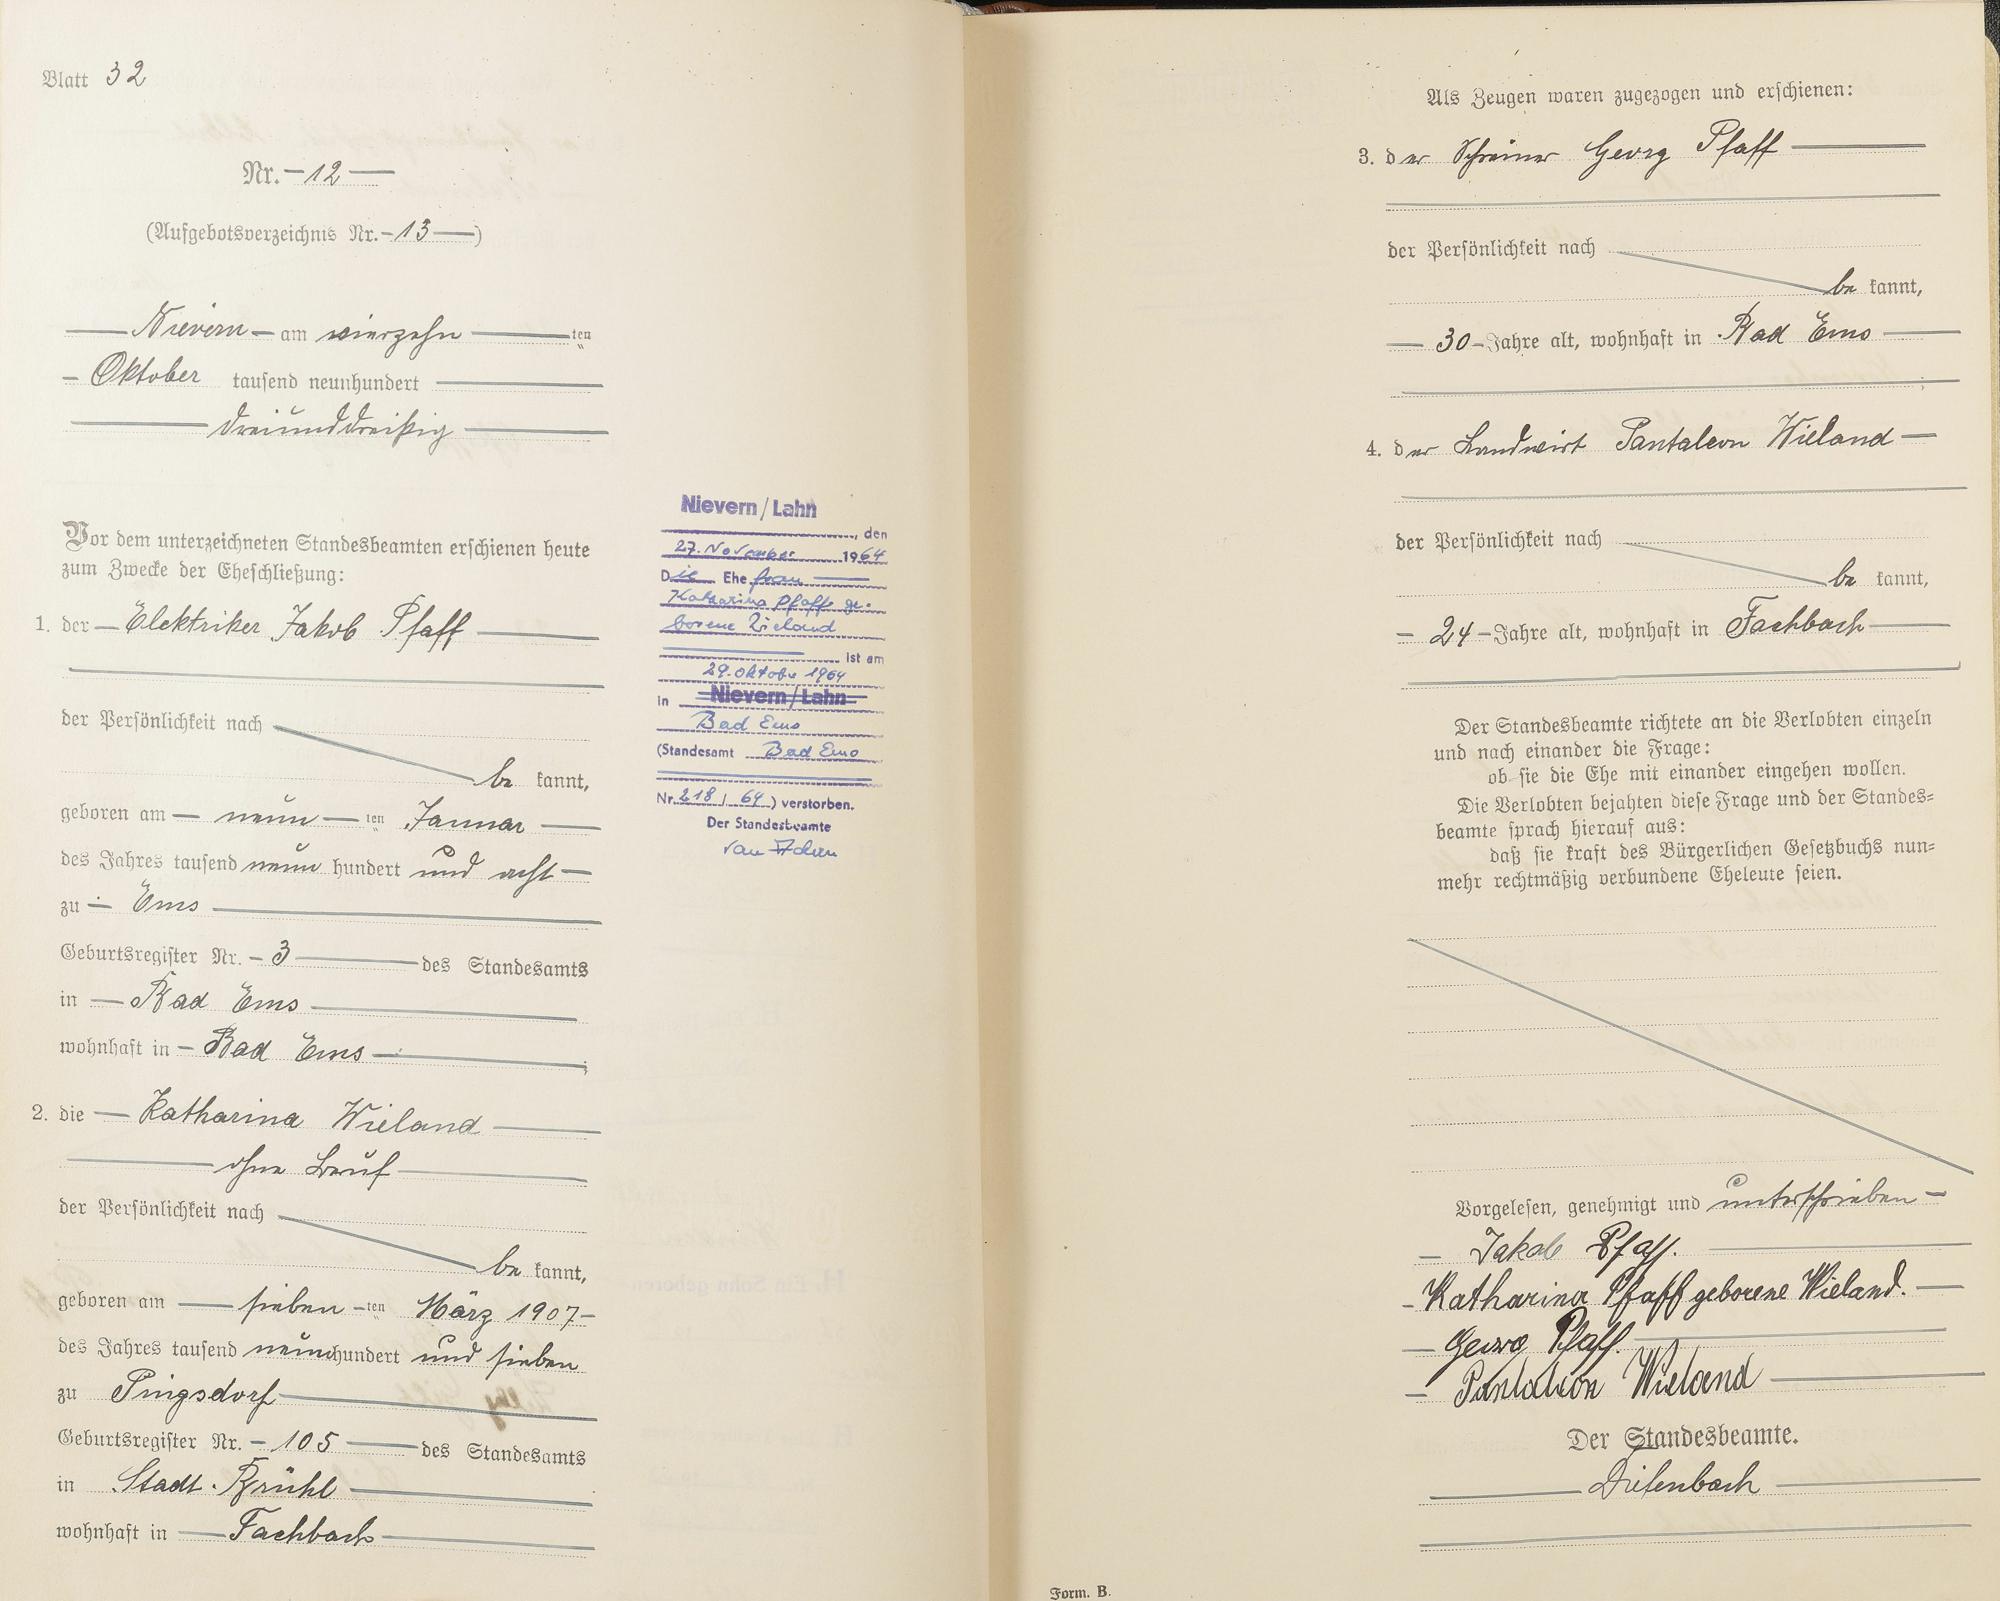 Blatt 32
Nr. 12
(Aufgebotsverzeichnis Nr. 13)
Nievern am vierzehn ten
Oktober tausend neunhundert
dreiunddreißig
Vor dem unterzeichneten Standesbeamten erschienen heute
zum Zwecke der Eheschließung:
1. der Elektriker Jakob Pfaff
der Persönlichkeit nach
be kannt,
geboren am neun ten Januar
des Jahres tausend neun hundert und acht
zu Ems
Geburtsregister Nr. 3 des Standesamts
in Bad Ems
wohnhaft in Bad Ems
2. die Katharina Wieland
ohne Beruf
der Persönlichkeit nach
be kannt,
geboren am sieben ten März 1907
des Jahres tausend neunhundert und sieben
zu Pingsdorf
Geburtsregister Nr. 105 des Standesamts
in Stadt Brühl
wohnhaft in Fachbach
Nievern/Lahn
, den
27. November 1964
Die Ehefrau
Katharina Pfaff ge-
borene Wieland
ist am
29. Oktober 1964
in Nievern/Lahn
Bad Ems
(Standesamt Bad Ems
Nr. 218 / 64) verstorben.
Der Standesbeamte
Als Zeugen waren zugezogen und erschienen:
3. der Schreiner Georg Pfaff
der Persönlichkeit nach
be kannt,
30 Jahre alt, wohnhaft in Bad Ems
4. der Landwirt Pantaleon Wieland
der Persönlichkeit nach
be kannt,
24 Jahre alt, wohnhaft in Fachbach
Der Standesbeamte richtete an die Verlobten einzeln
und nach einander die Frage:
ob sie die Ehe mit einander eingehen wollen.
Die Verlobten bejahten diese Frage und der Standes-
beamte sprach hierauf aus:
daß sie kraft des Bürgerlichen Gesetzbuchs nun-
mehr rechtmäßig verbundene Eheleute seien.
Vorgelesen, genehmigt und unterschrieben
Jakob Pfaff.
Katharina Pfaff geborene Wieland.
Georg Pfaff.
Pantaleon Wieland
Der Standesbeamte.
Diefenbach
Form. B.